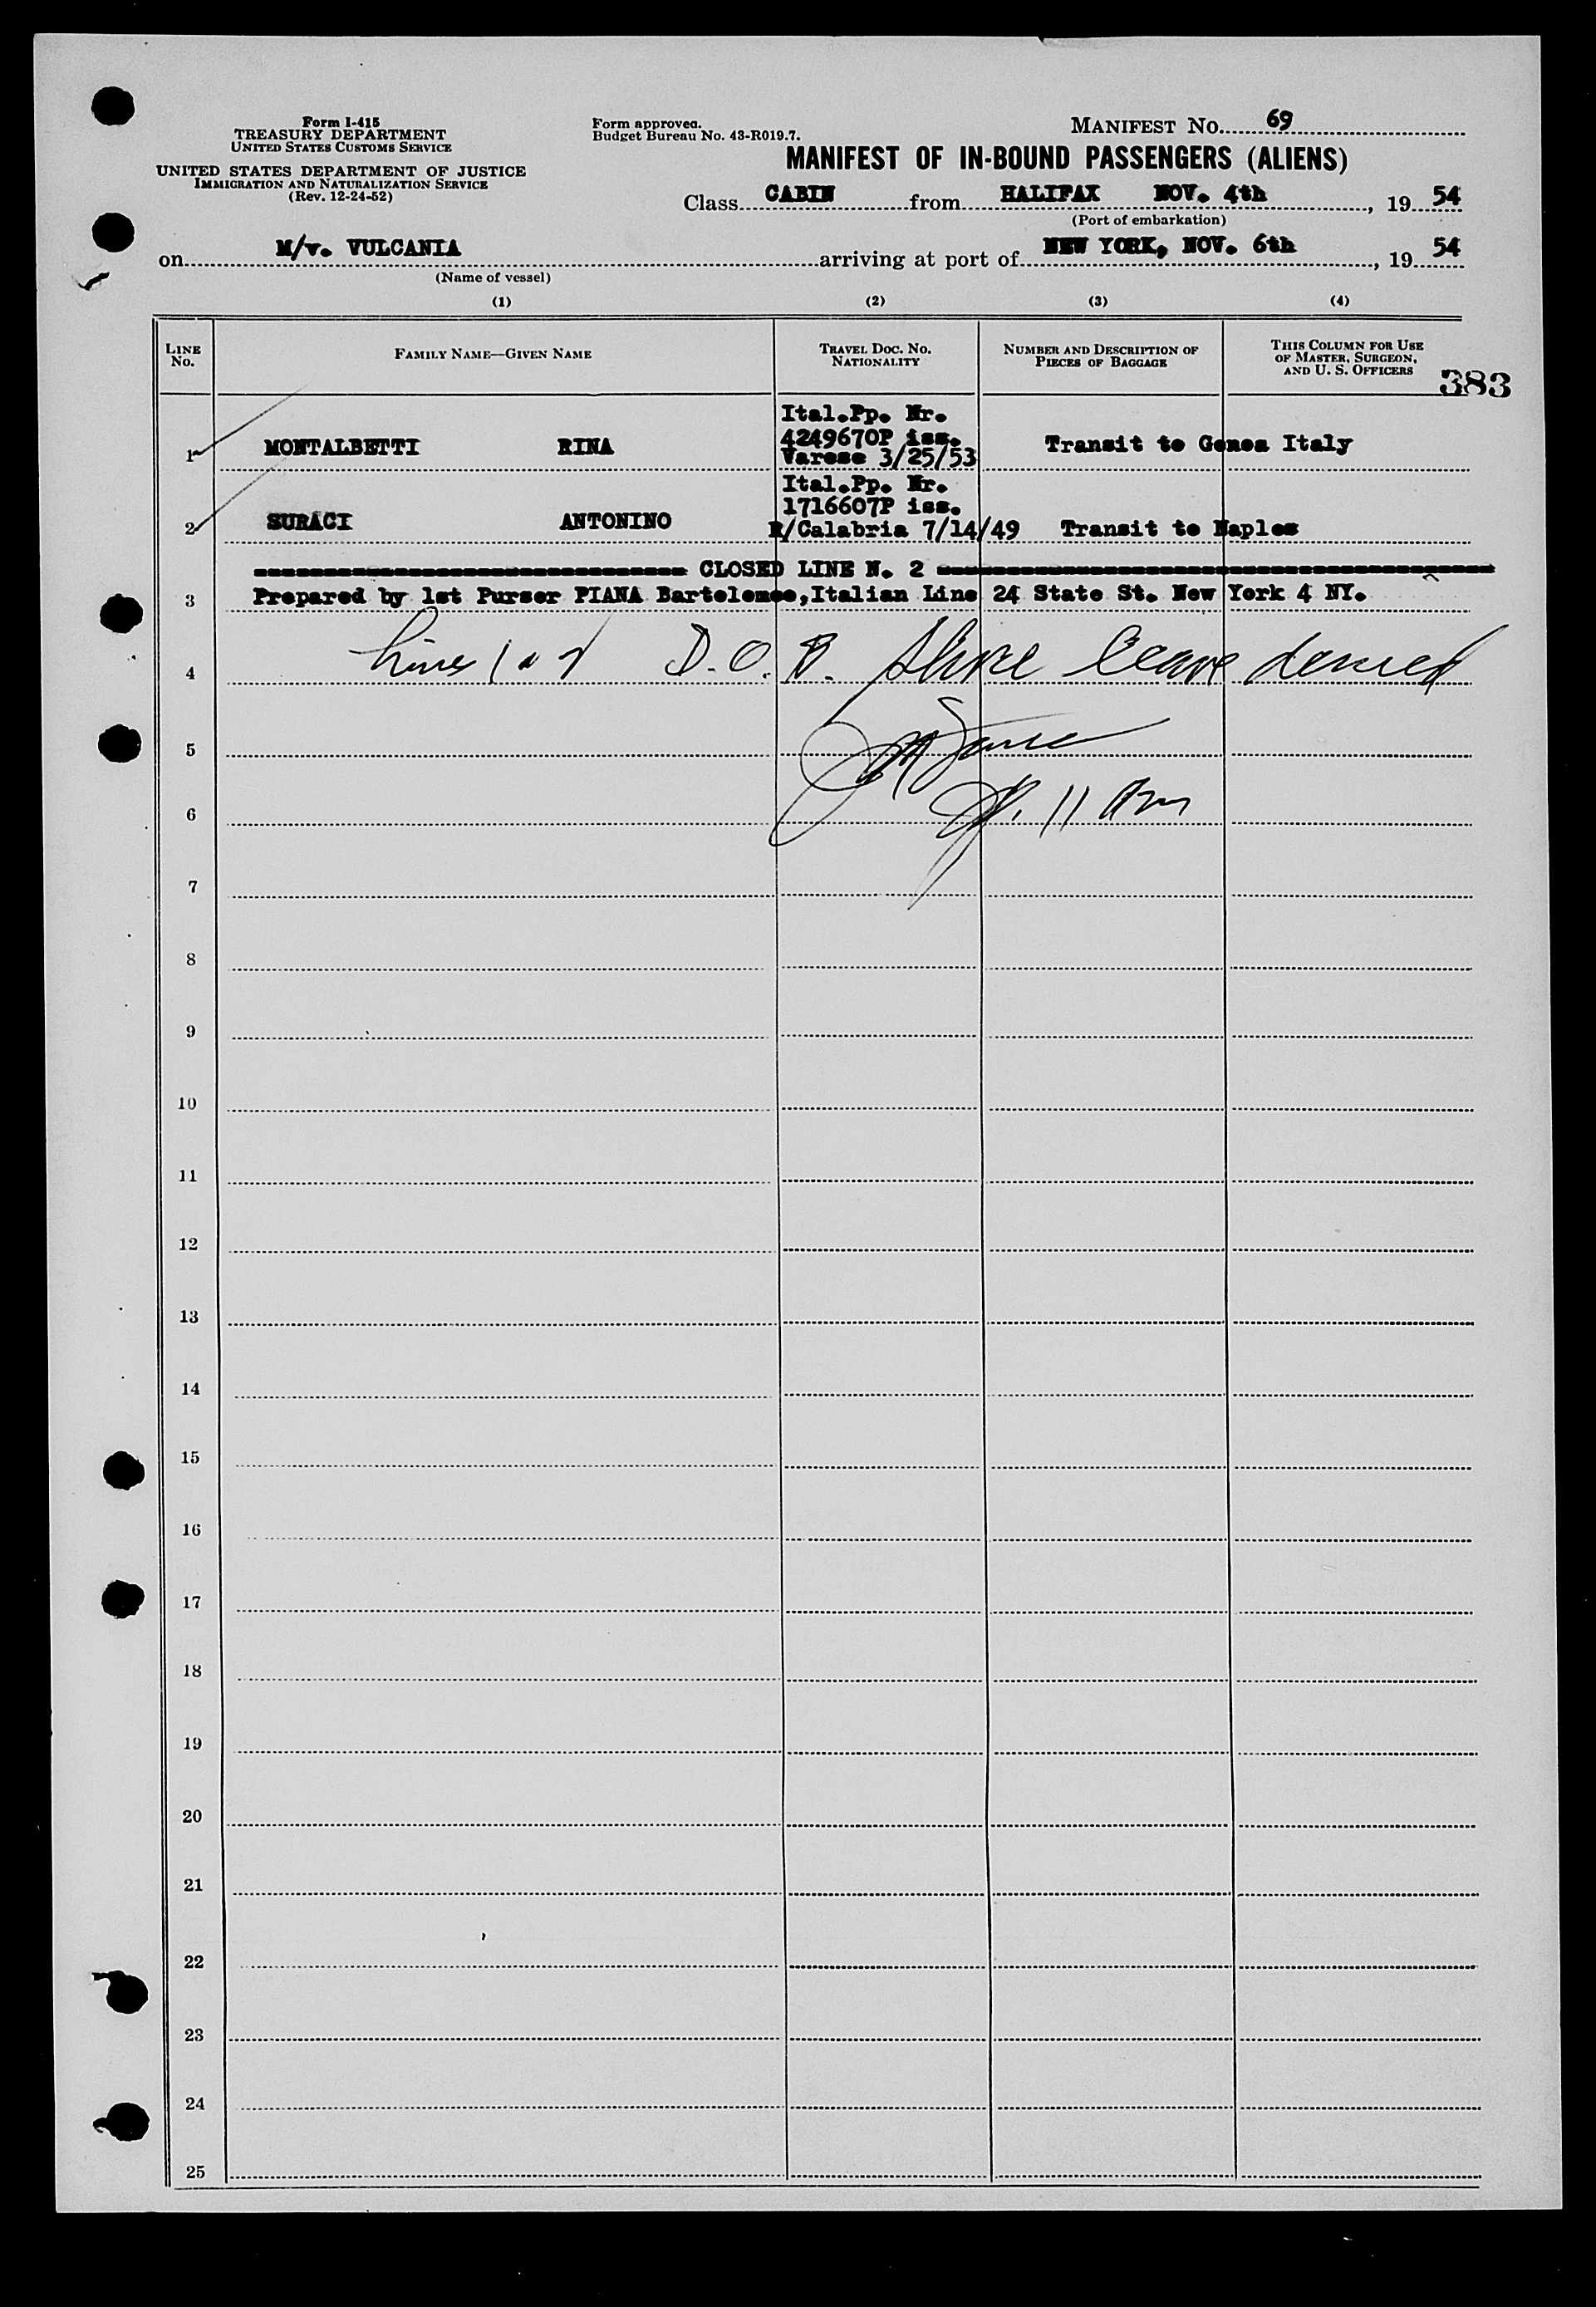 Form I-415
TREASURY DEPARTMENT
UNITED STATES CUSTOMS SERVICE
UNITED STATES DEPARTMENT OF JUSTICE
IMMIGRATION AND NATURALIZATION SERVICE
(Rev. 12-24-52)
Form approved.
Budget Bureau No. 43-R019.7.
MANIFEST NO. 69
MANIFEST OF IN-BOUND PASSENGERS (ALIENS)
Class CABIN from HALIFAX NOV. 4th, 19 54
(Port of embarkation)
on M/v. VULCANIA arriving at port of NEW YORK, NOV. 6th, 19 54
(Name of vessel)
(1) (2) (3) (4)
LINE No. FAMILY NAME—GIVEN NAME TRAVEL DOC. NO. NATIONALITY NUMBER AND DESCRIPTION OF PIECES OF BAGGAGE THIS COLUMN FOR USE OF MASTER, SURGEON, AND U. S. OFFICERS
383
Ital.Pp. Nr.
4249670P iss.
1 MONTALBETTI RINA Varese 3/25/53 Transit to Genoa Italy
Ital.Pp. Nr.
1716607P iss.
2 SURACI ANTONINO R/Calabria 7/14/49 Transit to Naples
CLOSED LINE N. 2
3 Prepared by 1st Purser PIANA Bartolomeo,Italian Line 24 State St. New York 4 NY.
4 Lines 1 & 2 D.O.B. Shore leave denied
5
6 11 Am
7
8
9
10
11
12
13
14
15
16
17
18
19
20
21
22
23
24
25